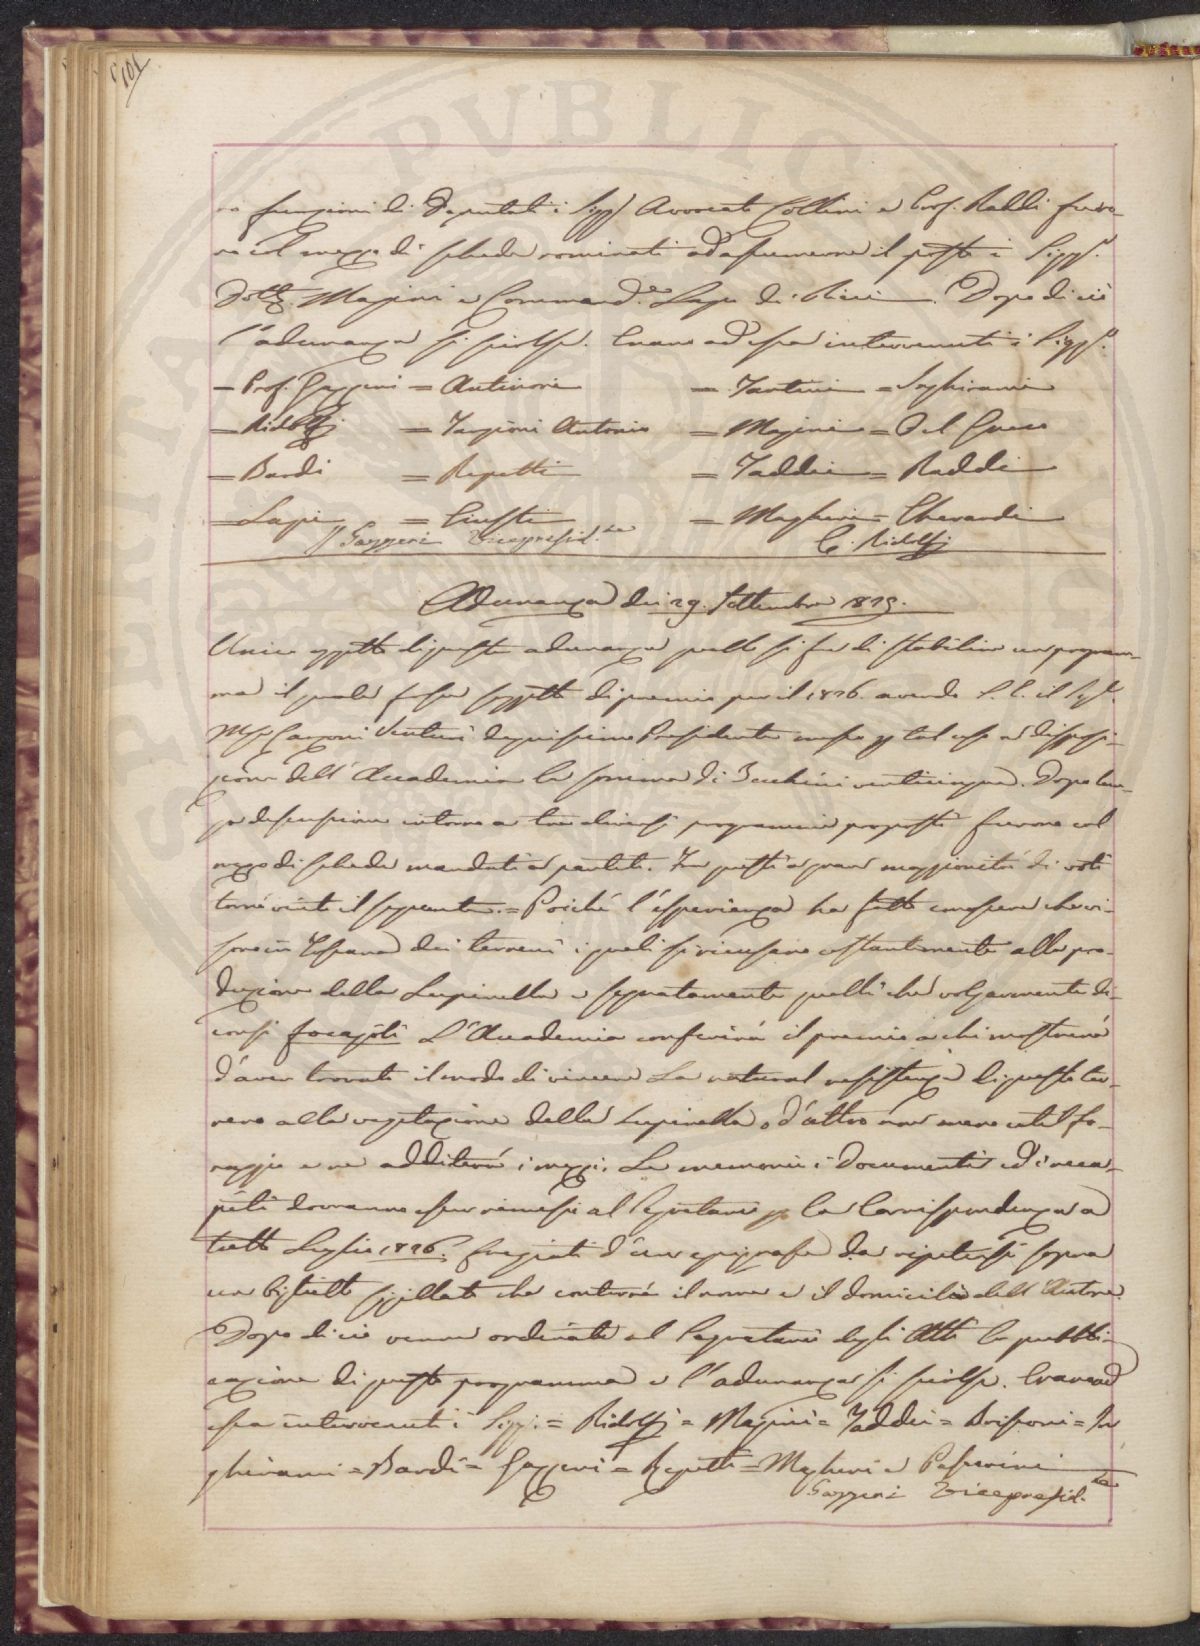 101
no funzioni di Deputati i Sigg.ri Avvocato Collini e Prof. Raddi furo-
no col mezzo di schede nominati ad assumerne il posto i Sigg.ri
Dott. Magini e Command.re Lapo de' Ricci. Dopo di ciò
l'adunanza si sciolse. Erano ad essa intervenuti i Sigg.ri
= Prof. Gazzeri = Antinori = Tartini = Inghirami
= Ridolfi = Targioni Antonio = Magini = Del Greco
= Bardi = Repetti = Taddei = Raddi
= Lapi = Giusti = Magheri = Gherardi
G. Gazzeri Vicepresid.te C. Ridolfi
Adunanza dei 29. Settembre 1825.
Unico oggetto di questa adunanza quello si fu di stabilire un program-
ma il quale fosse soggetto di premio per il 1826. avendo S. E. il Sig.r
M.se Garzoni Venturi degnissimo Presidente messo p. tal uso a disposi-
zione dell' Accademia la somma di Zecchini venticinque. Dopo lun-
ga discussione intorno a tre diversi programmi proposti furono col
mezzo di schede mandati a partito. Fra questi a gran maggiorità di voti
tornò vinto il seguente. = Poiché l'esperienza ha fatto conoscere che vi
sono in Toscana dei terreni i quali si ricusano costantemente alla pro-
duzione della Lupinella e segnatamente quelli che volgarmente di-
consi focajoli L'Accademia conferirà il premio a chi mostrerà
d'aver trovato il modo di vincere la natural resistenza di questo ter-
reno alla vegetazione della Lupinella, o d'altro non meno util fo-
raggio e ne additerà i mezzi. Le memorie i documenti ed i reca-
piti dovranno esser rimessi al Segretario p. la Corrispondenza a
tutto Luglio 1826. fregiati d'un epigrafe da ripetersi sopra
un biglietto sigillato che conterrà il nome e il domicilio dell' Autore.
Dopo di ciò venne ordinato al Segretario degli Atti la pubbli-
cazione di questo programma e l'adunanza si sciolse. Erano ad
essa intervenuti i Sigg.ri = Ridolfi = Magini = Taddei = Brissoni = In
ghirami = Bardi = Gazzeri = Repetti = Magheri e Passerini
Gazzeri Vicepresid.te